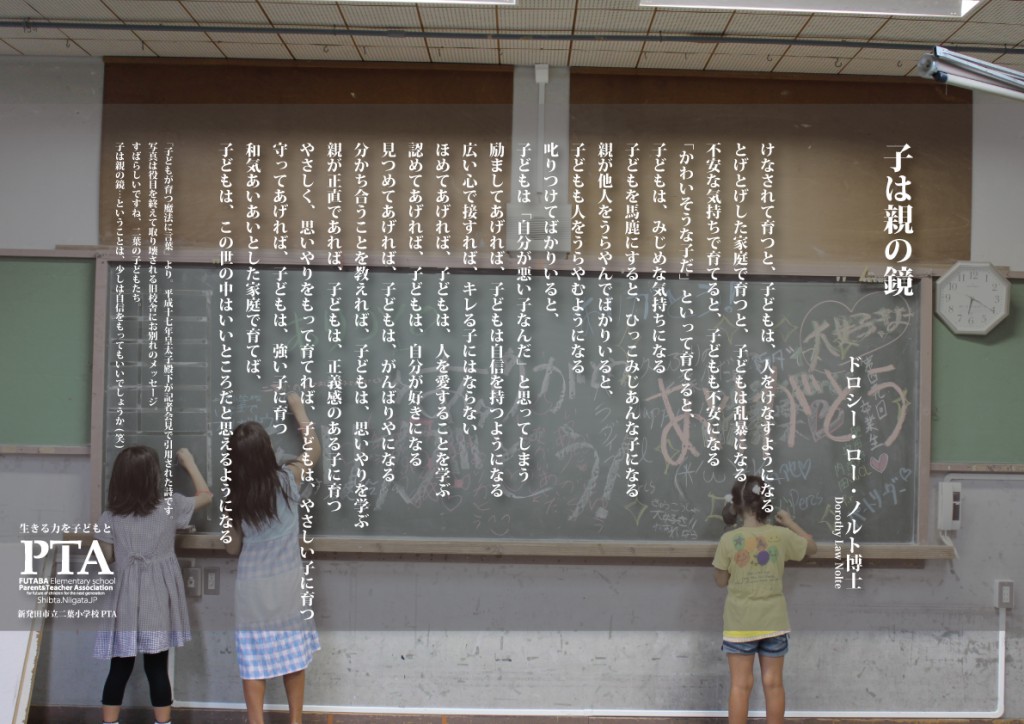 子は親の鏡
ドロシー・ロー・ノルト博士
Dorothy Law Nolte
けなされて育つと、子どもは、人をけなすようになる
とげとげした家庭で育つと、子どもは乱暴になる
不安な気持ちで育てると、子どもも不安になる
「かわいそうな子だ」といって育てると、
子どもは、みじめな気持ちになる
子どもを馬鹿にすると、ひっこみじあんな子になる
親が他人をうらやんでばかりいると、
子どもも人をうらやむようになる
叱りつけてばかりいると、
子どもは「自分が悪い子なんだ」と思ってしまう
励ましてあげれば、子どもは自信を持つようになる
広い心で接すれば、キレる子にはならない
ほめてあげれば、子どもは、人を愛することを学ぶ
認めてあげれば、子どもは、自分が好きになる
見つめてあげれば、子どもは、がんばりやになる
分かち合うことを教えれば、子どもは、思いやりを学ぶ
親が正直であれば、子どもは、正義感のある子に育つ
やさしく、思いやりをもって育てれば、子どもは、やさしい子に育つ
守ってあげれば、子どもは、強い子に育つ
和気あいあいとした家庭で育てば、
子どもは、この世の中はいいところだと思えるようになる
「子どもが育つ魔法に言葉」より 平成十七年皇太子殿下が記者会見で引用された詩です。
写真は役目を終えて取り壊される旧校舎にお別れのメッセージ
すばらしいですね、二葉の子どもたち
子は親の鏡…ということは、少しは自信をもってもいいでしょうか(笑)
生きる力を子どもと
PTA
FUTABA Elementary school
Parent&Teacher Association
for future of children for the next generation
Shibta.Niigata.JP
新発田市立二葉小学校 PTA
大好きだよ
ありがとう